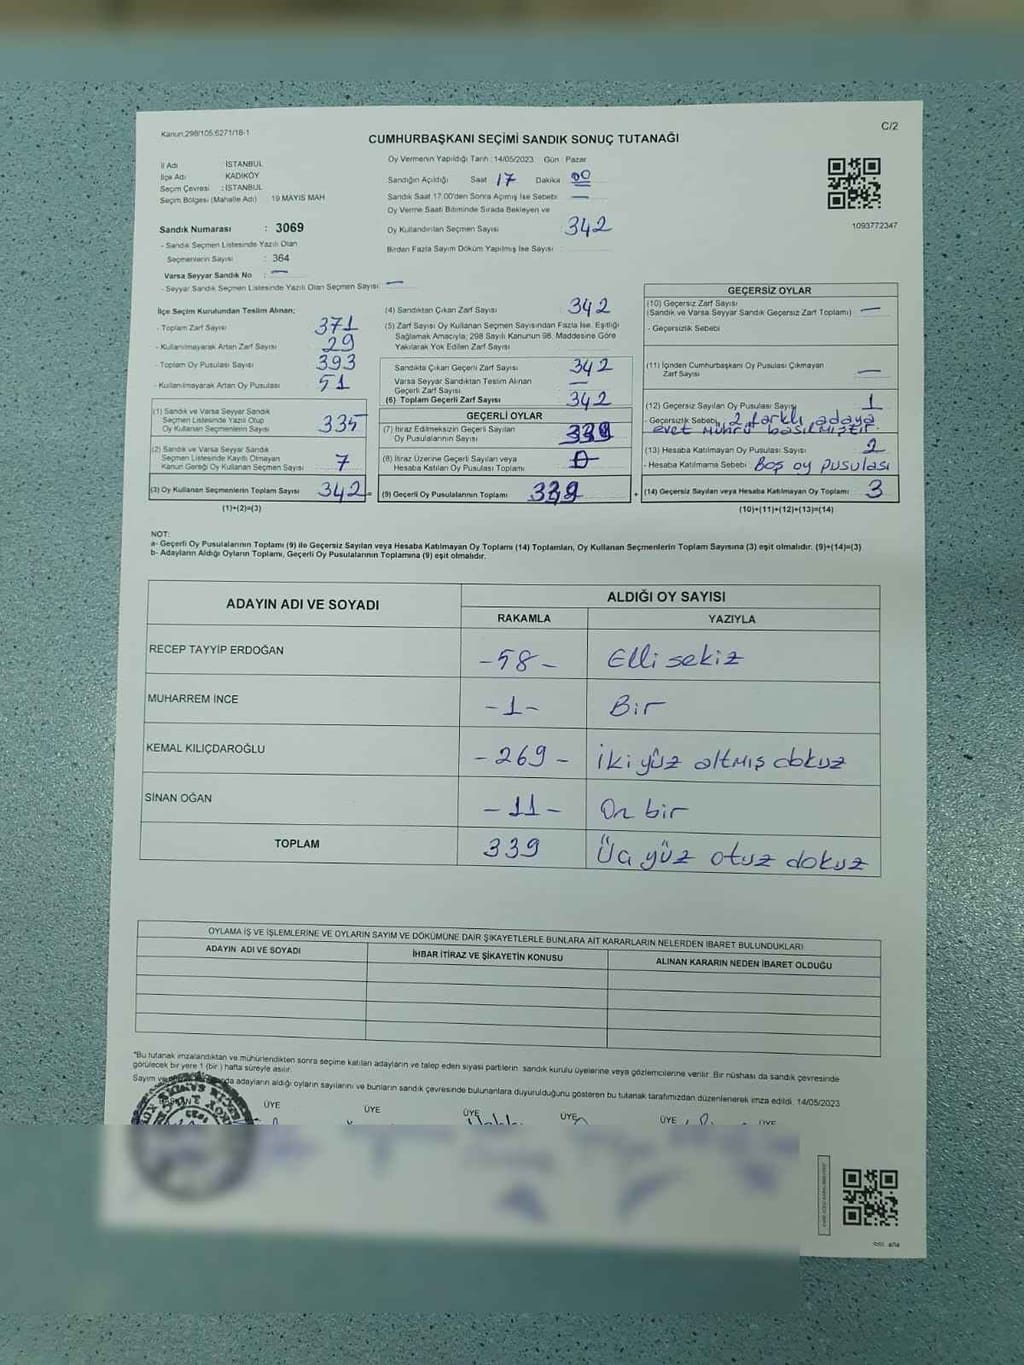 Kanun;298/105;6271/18-1
C/2
CUMHURBAŞKANI SEÇİMİ SANDIK SONUÇ TUTANAĞI
İl Adı İSTANBUL
İlçe Adı KADIKÖY
Seçim Çevresi : İSTANBUL
Seçim Bölgesi (Mahalle Adı) 19 MAYIS MAH
Sandık Numarası : 3069
- Sandık Seçmen Listesinde Yazılı Olan
Seçmenlerin Sayısı : 364
Varsa Seyyar Sandık No : —
- Seyyar Sandık Seçmen Listesinde Yazılı Olan Seçmen Sayısı: —
Oy Vermenin Yapıldığı Tarih :14/05/2023 Gün : Pazar
Sandığın Açıldığı Saat 17 Dakika 00
Sandık Saat 17:00'den Sonra Açılmış İse Sebebi: —
Oy Verme Saati Bitiminde Sırada Bekleyen ve
Oy Kullandırılan Seçmen Sayısı 342
Birden Fazla Sayım Döküm Yapılmış İse Sayısı :
1093772347
İlçe Seçim Kurulundan Teslim Alınan;
- Toplam Zarf Sayısı : 371
- Kullanılmayarak Artan Zarf Sayısı : 29
- Toplam Oy Pusulası Sayısı : 393
- Kullanılmayarak Artan Oy Pusulası : 51
(1) Sandık ve Varsa Seyyar Sandık
Seçmen Listesinde Yazılı Olup
Oy Kullanan Seçmenlerin Sayısı : 335
(2) Sandık ve Varsa Seyyar Sandık
Seçmen Listesinde Kayıtlı Olmayan
Kanun Gereği Oy Kullanan Seçmen Sayısı : 7
(3) Oy Kullanan Seçmenlerin Toplam Sayısı : 342
(1)+(2)=(3)
(4) Sandıktan Çıkan Zarf Sayısı : 342
(5) Zarf Sayısı Oy Kullanan Seçmen Sayısından Fazla İse, Eşitliği
Sağlamak Amacıyla; 298 Sayılı Kanunun 98. Maddesine Göre
Yakılarak Yok Edilen Zarf Sayısı
Sandıkta Çıkan Geçerli Zarf Sayısı : 342
Varsa Seyyar Sandıktan Teslim Alınan
Geçerli Zarf Sayısı —
(6) Toplam Geçerli Zarf Sayısı : 342
GEÇERLİ OYLAR
(7) İtiraz Edilmeksizin Geçerli Sayılan
Oy Pusulalarının Sayısı : 339
(8) İtiraz Üzerine Geçerli Sayılan veya
Hesaba Katılan Oy Pusulası Toplamı : 0
(9) Geçerli Oy Pusulalarının Toplamı : 339
GEÇERSİZ OYLAR
(10) Geçersiz Zarf Sayısı
(Sandık ve Varsa Seyyar Sandık Geçersiz Zarf Toplamı) : —
- Geçersizlik Sebebi
(11) İçinden Cumhurbaşkanı Oy Pusulası Çıkmayan
Zarf Sayısı : —
(12) Geçersiz Sayılan Oy Pusulası Sayısı : 1
- Geçersizlik Sebebi: 2 farklı adaya
evet mührü basılmıştır.
(13) Hesaba Katılmayan Oy Pusulası Sayısı : 2
- Hesaba Katılmama Sebebi : Boş oy pusulası
(14) Geçersiz Sayılan veya Hesaba Katılmayan Oy Toplamı : 3
(10)+(11)+(12)+(13)=(14)
NOT:
a- Geçerli Oy Pusulalarının Toplamı (9) ile Geçersiz Sayılan veya Hesaba Katılmayan Oy Toplamı (14) Toplamları, Oy Kullanan Seçmenlerin Toplam Sayısına (3) eşit olmalıdır. (9)+(14)=(3)
b- Adayların Aldığı Oyların Toplamı, Geçerli Oy Pusulalarının Toplamına (9) eşit olmalıdır.
ADAYIN ADI VE SOYADI
ALDIĞI OY SAYISI
RAKAMLA YAZIYLA
RECEP TAYYİP ERDOĞAN -58- Elli sekiz
MUHARREM İNCE -1- Bir
KEMAL KILIÇDAROĞLU -269- iki yüz altmış dokuz
SİNAN OĞAN -11- On bir
TOPLAM 339 Üç yüz otuz dokuz
OYLAMA İŞ VE İŞLEMLERİNE VE OYLARIN SAYIM VE DÖKÜMÜNE DAİR ŞİKAYETLERLE BUNLARA AİT KARARLARIN NELERDEN İBARET BULUNDUKLARI
ADAYIN ADI VE SOYADI İHBAR İTİRAZ VE ŞİKAYETİN KONUSU ALINAN KARARIN NEDEN İBARET OLDUĞU
*Bu tutanak imzalandıktan ve mühürlendikten sonra seçime katılan adayların ve talep eden siyasi partilerin sandık kurulu üyelerine veya gözlemcilerine verilir. Bir nüshası da sandık çevresinde
görülecek bir yere 1 (bir ) hafta süreyle asılır.
Sayım ve adayların aldığı oyların sayılarını ve bunların sandık çevresinde bulunanlara duyurulduğunu gösteren bu tutanak tarafımızdan düzenlenerek imza edildi. 14/05/2023
ÜYE ÜYE ÜYE ÜYE ÜYE ÜYE